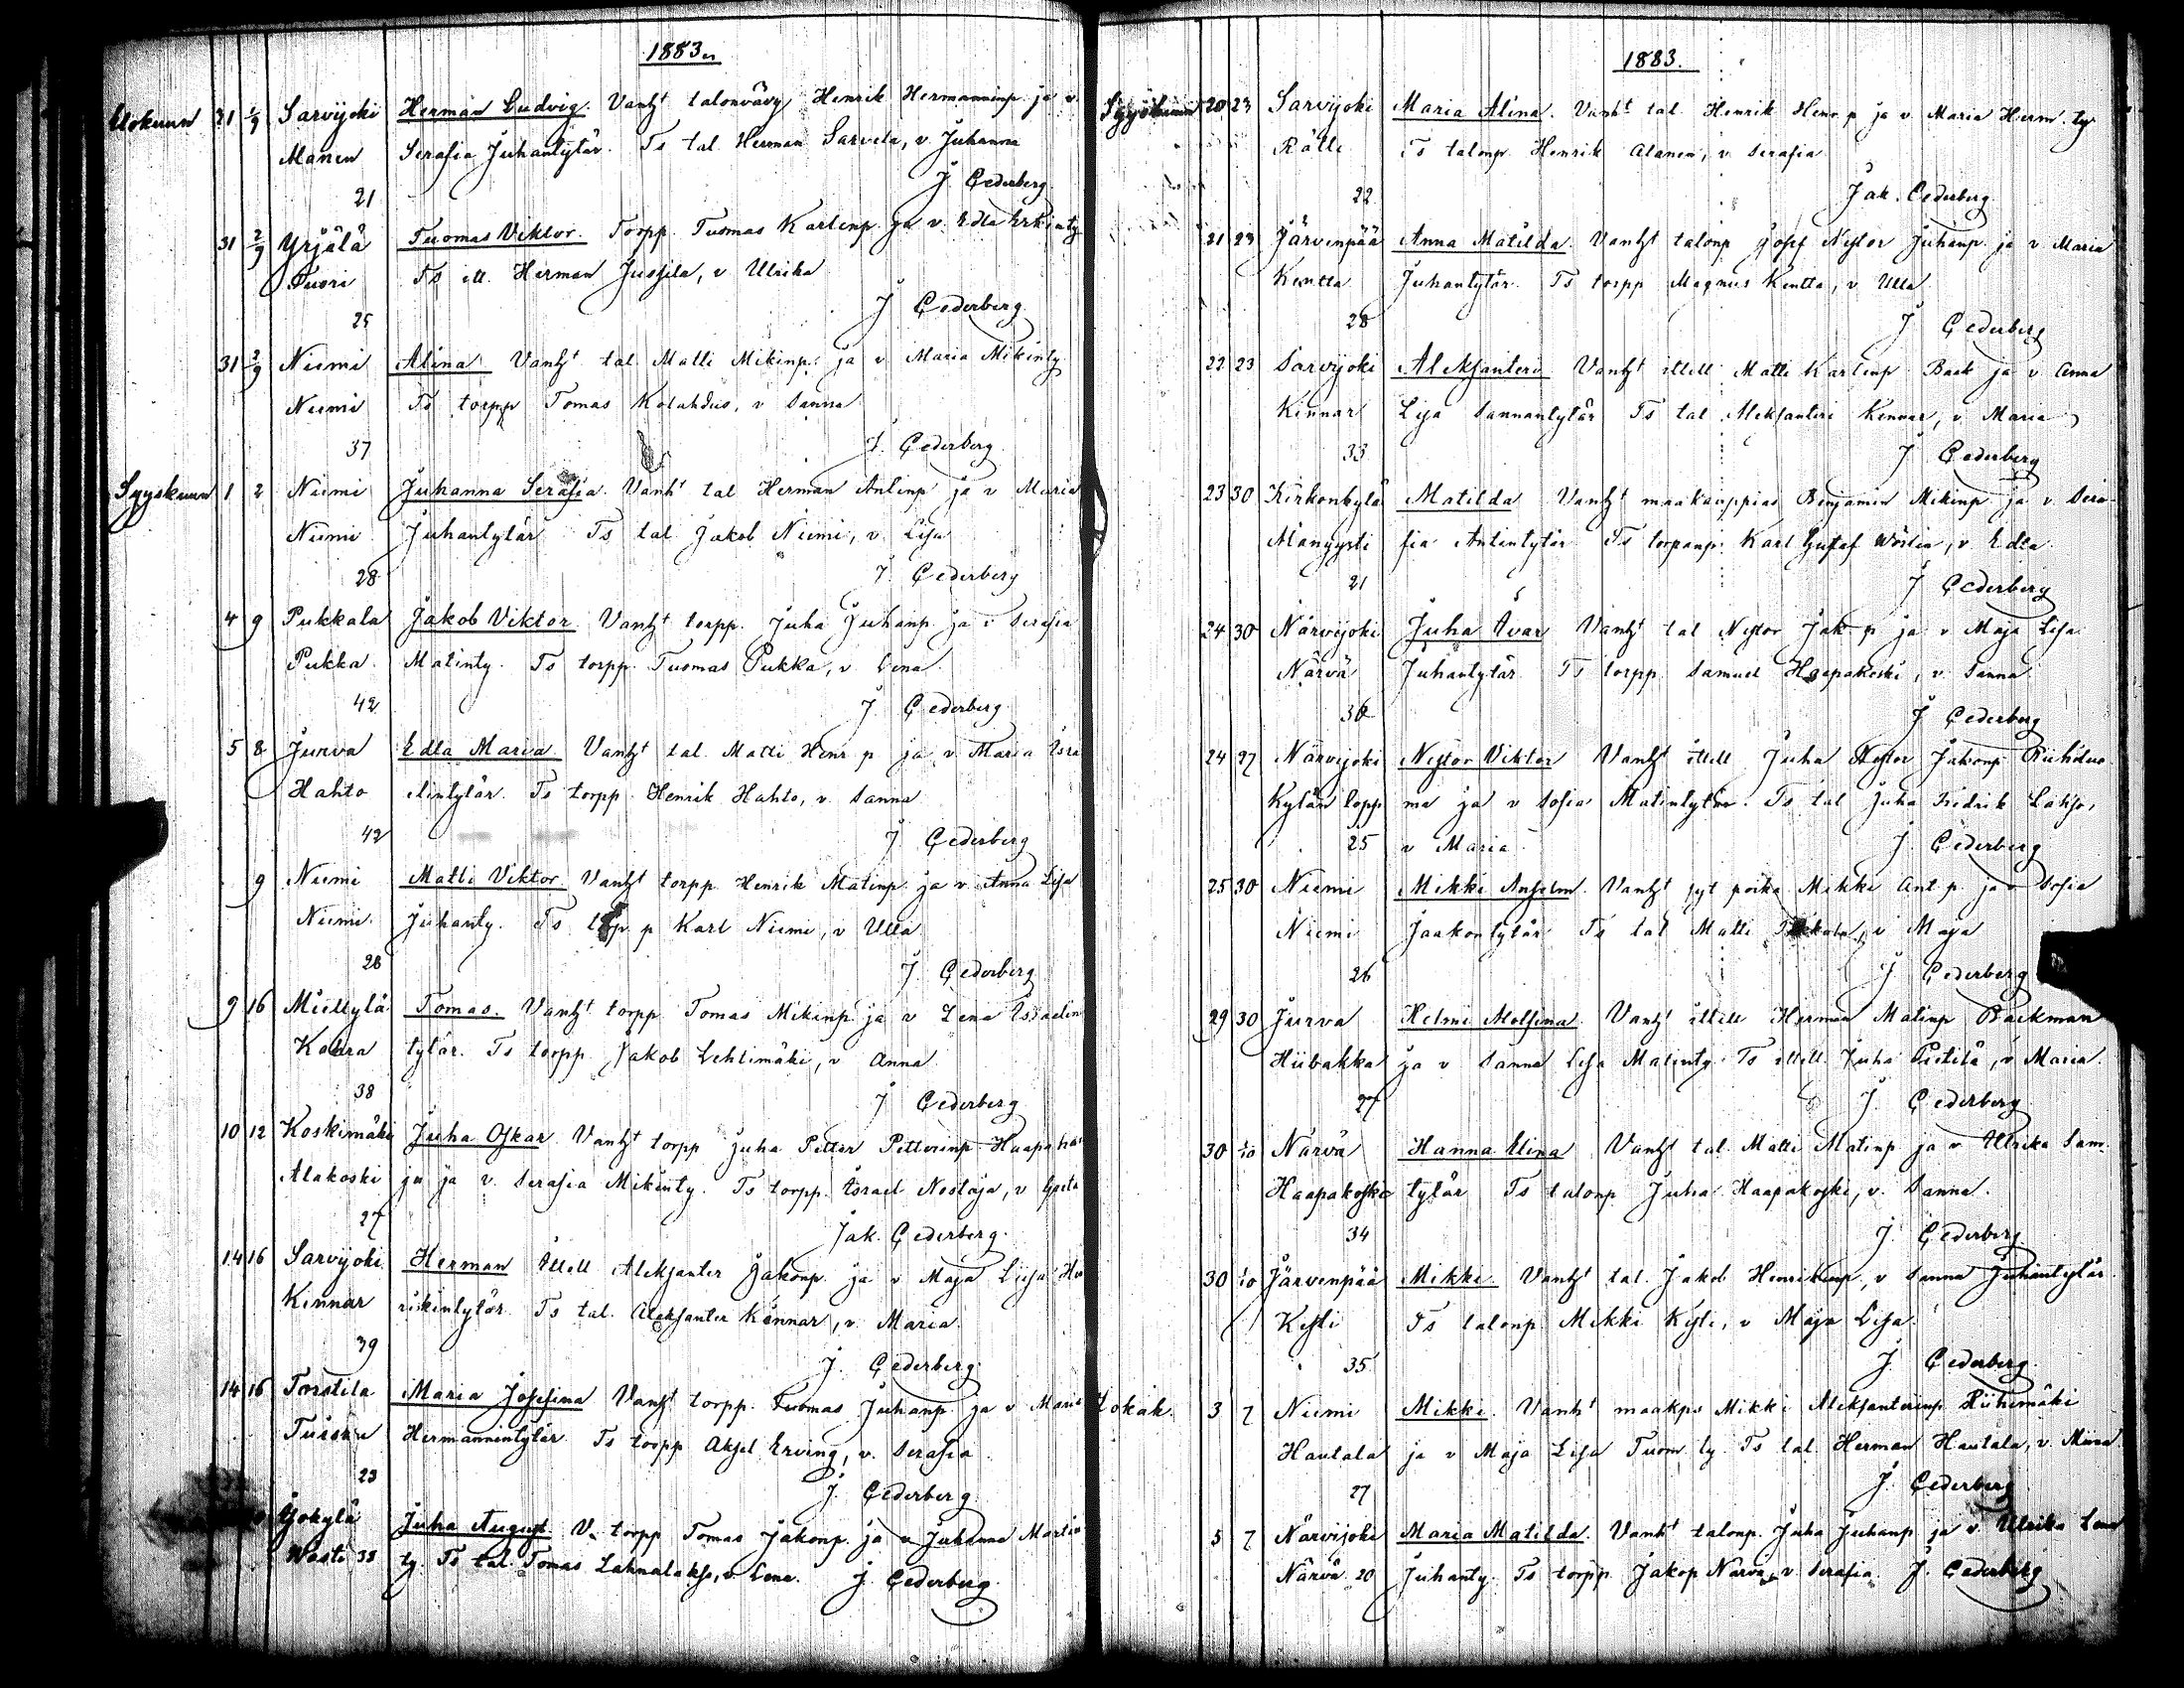 1883
Elokuun 31 1/9 Sarvijoki Herman Ludvig. Vanht talonvävy Henrik Hermanninp. ja v.
Alanen Serafia Juhantytär. Ts tal. Herman Sarvela, v. Juhanna
21 J. Cederberg
31 2/9 Yrjälä Tuomas Viktor. Torpp. Tuomas Karlinp. ja v. Edla Erkinty
Tuori Ts itl. Herman Jussila, v. Ulrika
25 J Cederberg
31 2/9 Niemi Alina Vanht tal. Matti Mikinp. ja v. Maria Mikinty
Niemi Ts torpp Tomas, v Sanna
37 J. Cederberg
Syyskuun 1 2 Niemi Juhanna Serafia. Vanht tal Herman Antinp ja v Maria
Niemi Juhantytär Ts tal Jakob Niemi, v. Lisa
28 J. Cederberg
4 9 Pukkala Jakob Viktor Vanht torpp. Juha Juhanp ja v Serafia
Pukka Matinty. Ts torpp. Tuomas Pukka, v. Lena
42 J. Cederberg
5 8 Jurva Edla Maria Vanht tal. Matti Henr. p ja v. Maria Isra
Hahto elintytär. Ts torpp. Henrik Hahto, v. Sanna
42 J Cederberg
9 Niemi Matti Viktor Vanht torpp Henrik Matinp. ja v. Anna Lisa
Niemi Juhanty. Ts p Karl Niemi, v Ulla
28 J Cederberg
9 16 Miettylä Tomas. Vanht torpp Tomas Mikinp. ja v Lena Israelin
Kohra tytär. Ts torpp. Jakob Lehtimäki, v Anna
38 J Cederberg
10 12 Koskimäki Juha Oskar Vanht torpp Juha Petter Petterinp. Haapaha
Alakoski ju ja v. Serafia Mikinty. Ts torpp. Israel Nostaja, v Greta
27 Jak. Cederberg.
14 16 Sarvijoki Herman Itlell Aleksanter Jakonp. ja v Maja Liisa Hn
Kinnar rikintytär. Ts tal. Aleksanter Kinnar, v. Maria
39 J. Cederberg
14 16 Torstila Maria Josefina Vanht torpp. Tuomas Juhanp ja v Maria
Tuisku Hermannintytär. Ts torpp Aksel Erving, v. Serafia
23 J. Cederberg
Jokylä Juha August. V. torpp Tomas Jakonp. ja v Juhanna Martin
Wasti 38 ty. Ts tal. Tomas Lahnalakso, v. Lena. J Cederberg
1883.
Syyskuun 20 23 Sarvijoki Maria Alina. Vanht tal. Henrik Henr. p ja v Maria Herm. ty
Rätti Ts talonp. Henrik Alanen, v. Serafia
22 Jak. Cederberg
21 23 Järvenpää Anna Matilda. Vanht talonp Josef Nestor Juhanp. ja v Maria
Kentta Juhantytär. Ts torpp Magnus Kentta, v Ulla
28 J Cederberg
22 23 Sarvijoki Aleksanteri Vanht itlell Matti Karlinp Back ja v Anna
Kinnar Lisa Sannantytär Ts tal Aleksanteri Kinnar, v. Maria
33 J Cederberg
23 30 Kirkonkylä Matilda Vanht maakauppias Benjamin Mikinp ja v. Sera-
Mangysti fia Antintytär Ts torpanp. Karl Gustaf Wörlin, v Edla
21 J Cederberg
24 30 Närvijoki Juha Ivar Vanht tal Nestor Jak. p ja v Maja Lisa
Närvä Juhantytär Ts torpp Samuel Haapakoski, v. Sanna
36 J Cederberg
24 27 Närvijoki Nestor Viktor Vanht itlell Juha Nestor Juhanp Riihiluo
Kylän lopp ma ja v Sofia Matintytär. Ts tal Juha Fredrik Lakso,
25 v Maria J Cederberg
25 30 Niemi Mikki Anselm. Vanht syt poika Mikki Ant. p. ja v Sofia
Niemi Jaakontytär Ts tal Matti, v Maja
26 J Cederberg
29 30 Jurva Helmi Alofina. Vanht itlell Herman Matinp Backman
Hiibakka ja v Sanna Lisa Matinty. Ts itlell. Juha Pietilä, v. Maria.
27 J. Cederberg
30 1/10 Närvä Hanna Elina Vanht tal. Matti Matinp ja v. Ulrika Sam-
Haapakoski tytär Ts talonp Juha Haapakoski, v. Sanna.
34 J. Cederberg
30 1/10 Järvenpää Mikki Vanht tal. Jakob Henrikinp, v Sanna Juhantytär.
Kysti Ts talonp. Mikki Kysti, v Maja Lisa.
35 J. Cederberg
Lokak. 3 7 Niemi Mikki. Vanht maakps Mikki Aleksanterinp Riihimäki
Hautala ja v Maja Lisa Tuom. ty. Ts tal Herman Hautala, v. Miina
27 J. Cederberg
5 7 Närvijoki Maria Matilda. Vanht talonp. Juha Juhanp ja v. Ulrika Lena
Närvä 20 Juhanty. Ts torpp Jakop Närvä, v. Serafia. J. Cederberg